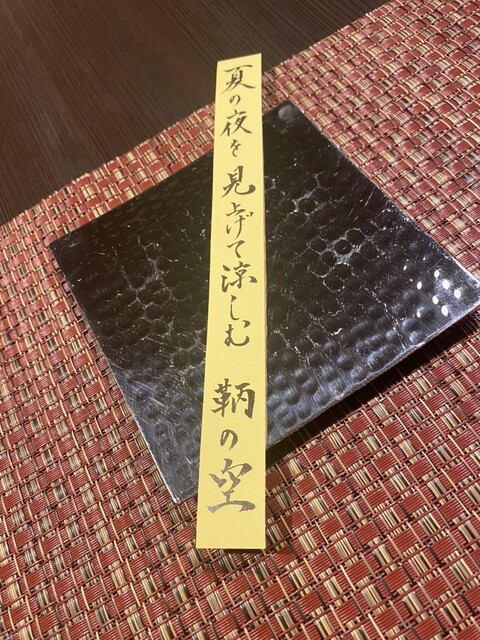 夏の夜を見上げて涼しむ 鞆の空